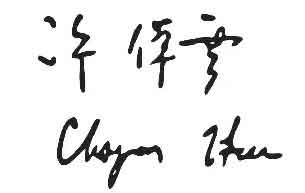 許倬雲
Choyun Hsu